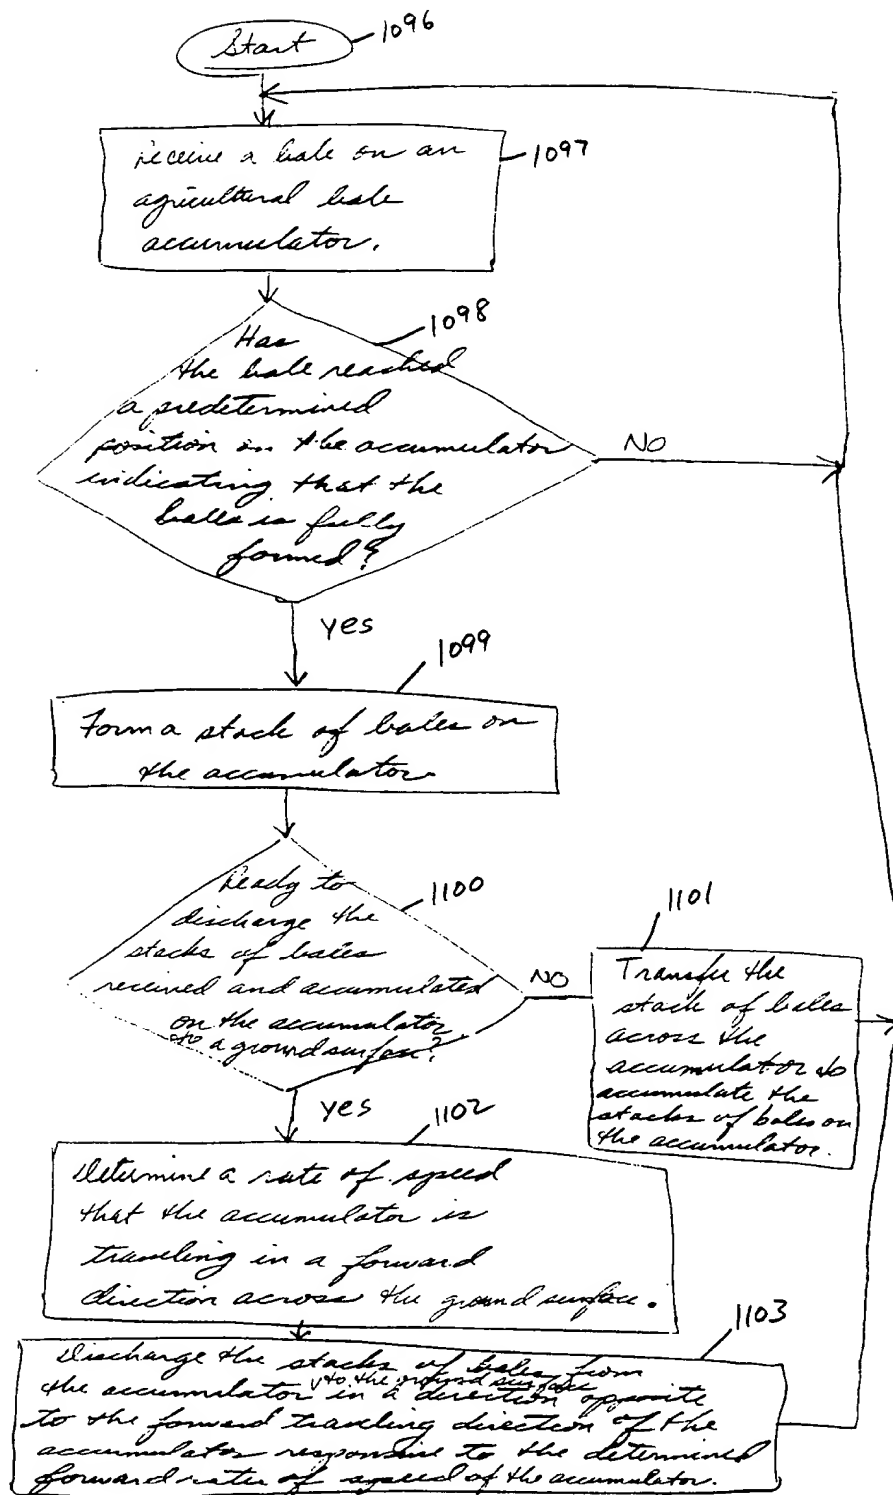 Start
1096
receive a bale on an
agricultural bale
accumulator.
1097
Has
the bale reached
a predetermined
position on the accumulator
indicating that the
bales is fully
formed?
1098
NO
yes
1099
Form a stack of bales on
the accumulator.
Ready to
discharge the
stacks of bales
received and accumulated
on the accumulator
to a ground surface?
1100
NO
1101
Transfer the
stack of bales
across the
accumulator to
accumulate the
stacks of bales on
the accumulator.
yes
1102
Determine a rate of speed
that the accumulator is
traveling in a forward
direction across the ground surface.
1103
Discharge the stacks of bales from
to the ground surface
the accumulator in a direction opposite
to the forward traveling direction of the
accumulator responsive to the determined
forward rate of speed of the accumulator.